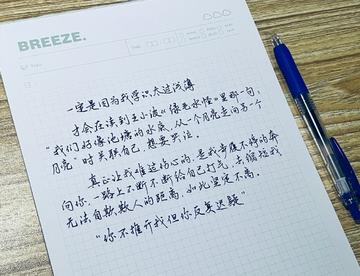 BREEZE.
一定是因为我学识太过浅薄
才会在读到王小波《绿毛水怪》里那一句，
“我们好像池塘的水底，从一个月亮走向另一个
月亮”时关联自己，想要哭泣。
真正让我难过的心的，是我背履不停的奔
向你，一路上不断不断给自己打气，去缩短我
无法自欺欺人的距离，如此坚定不离。
“你不推开我但你反复迟疑”